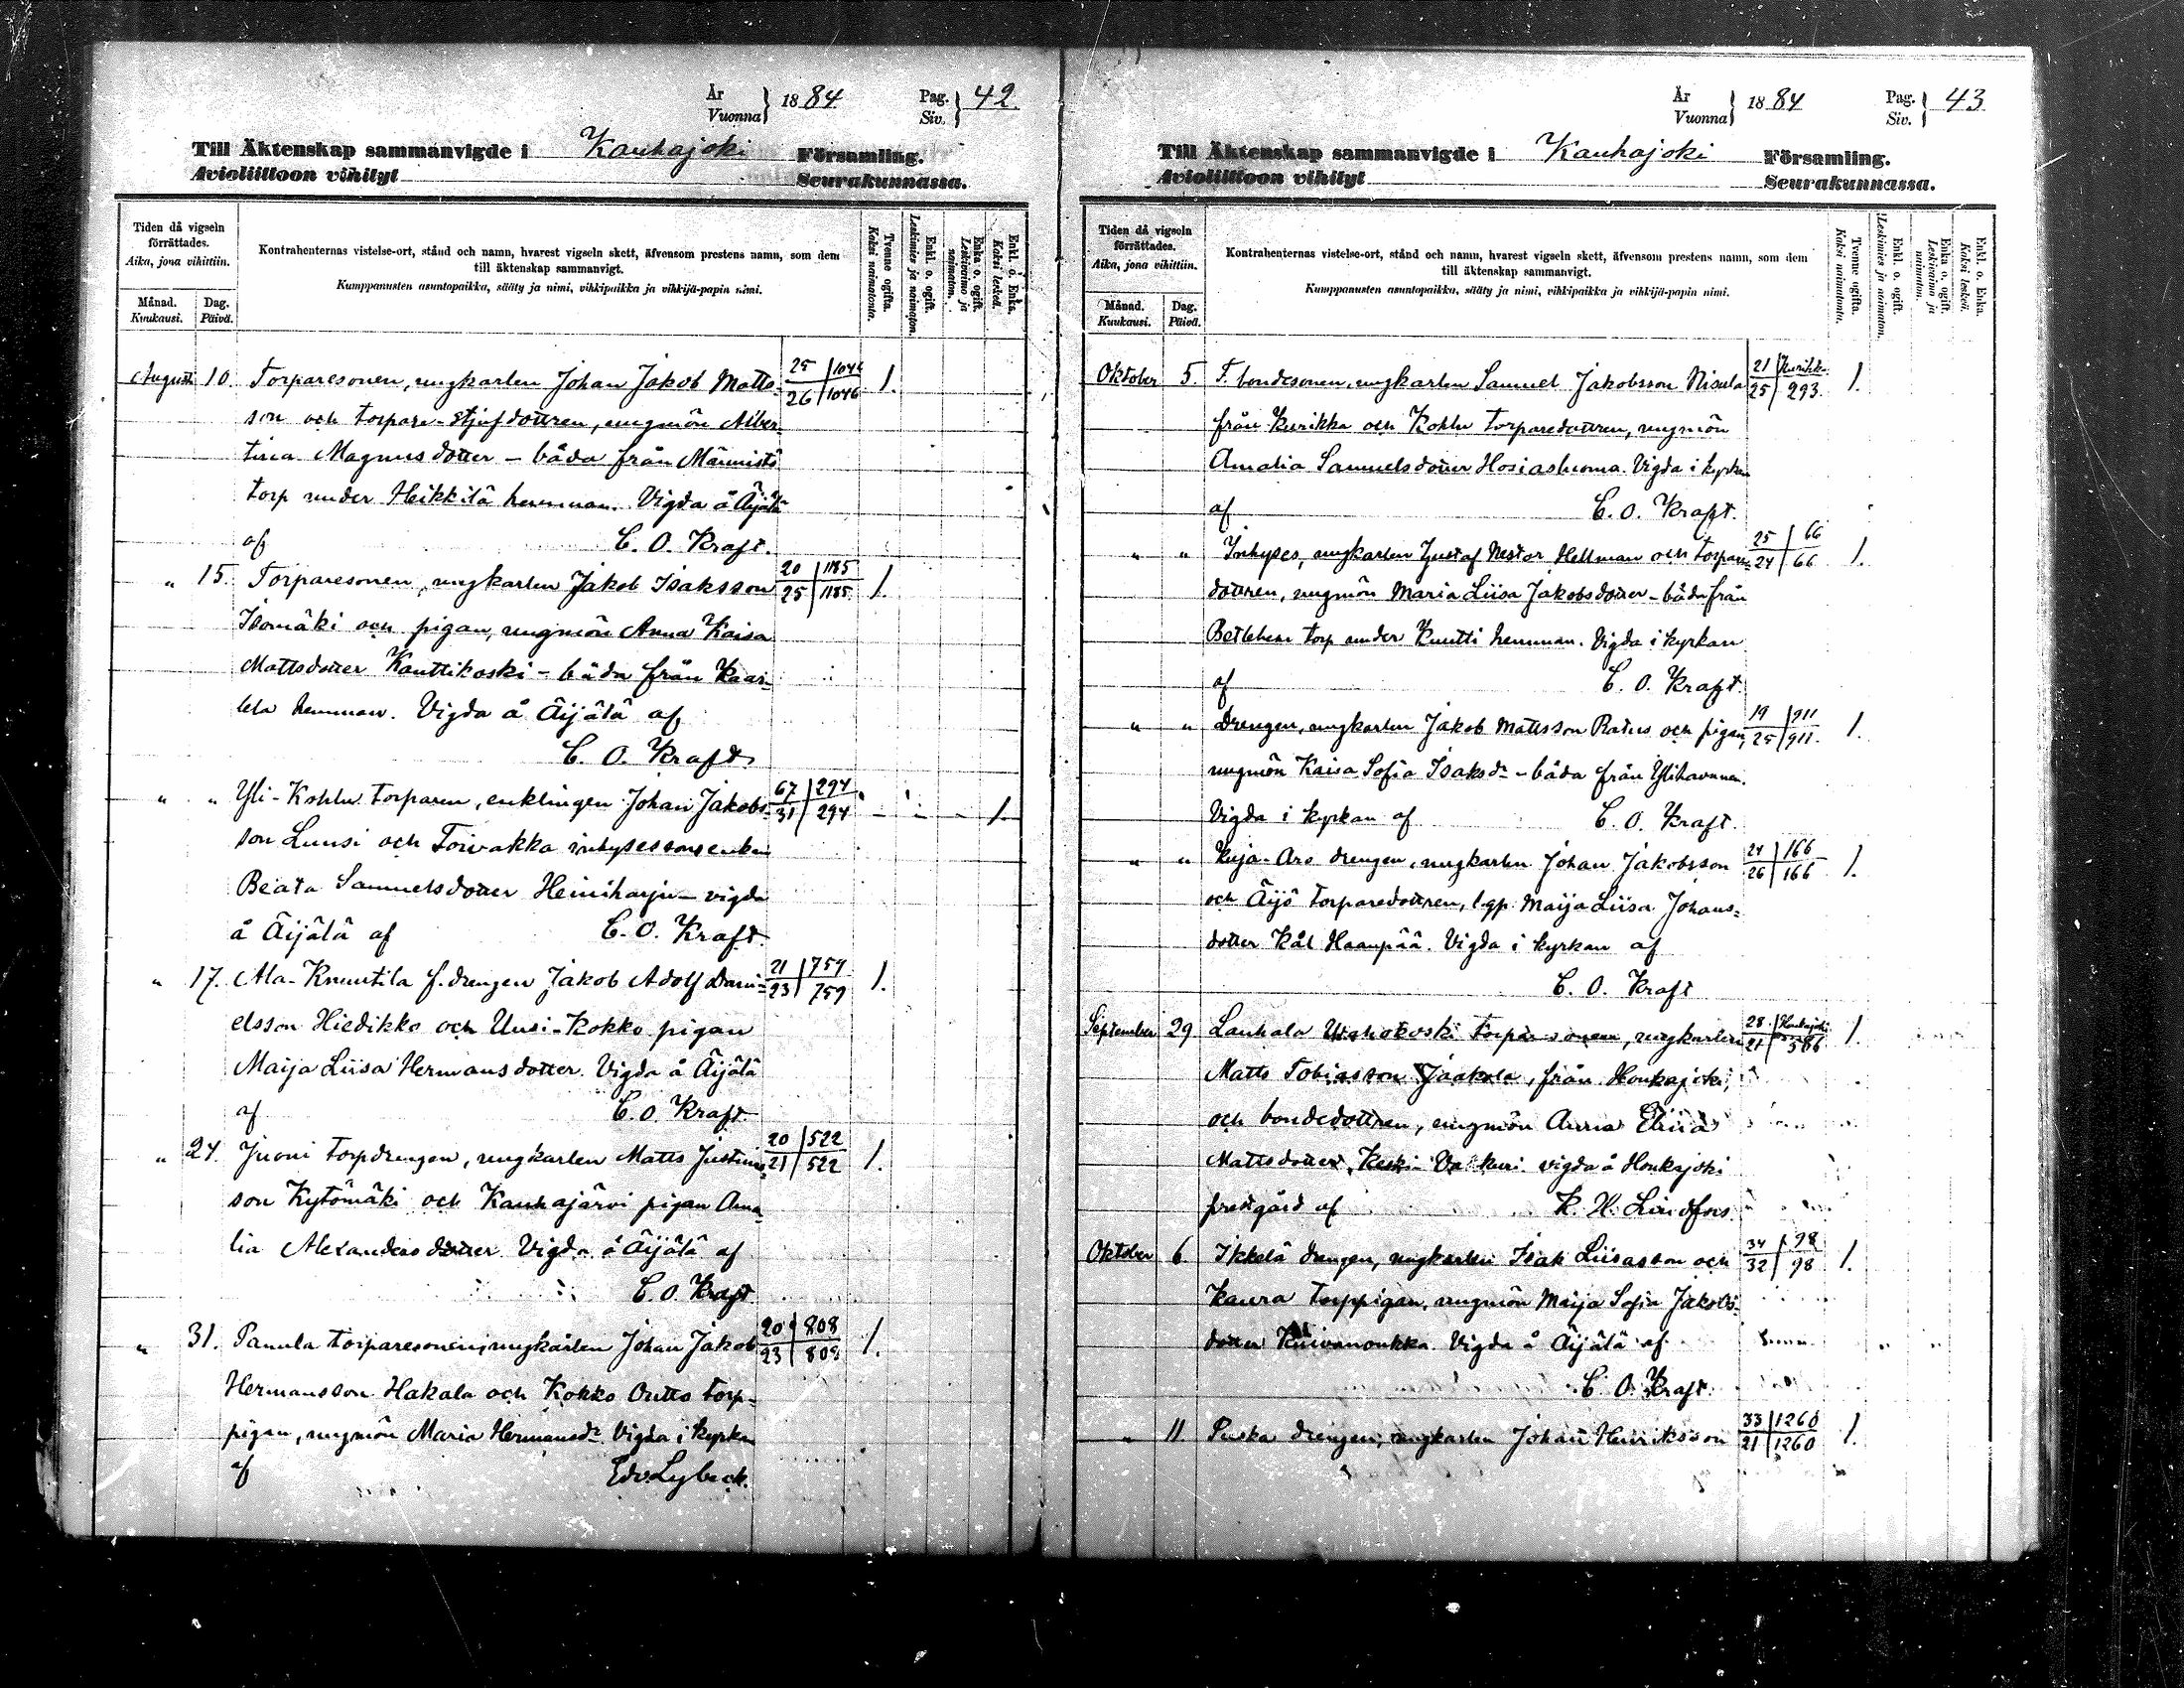 År
Vuonna } 1884 Pag.
Siv. } 42
Till Äktenskap sammanvigde i Kauhajoki Församling.
Avioliittoon vihityt Seurakunnassa.
Tiden då vigseln förrättades.
Aika, jona vihittiin.
Månad.
Kuukausi.
Dag.
Päivä.
Kontrahenternas vistelse-ort, stånd och namn, hvarest vigseln skett, äfvensom prestens namn, som dem
till äktenskap sammanvigt.
Kumppanusten asuntopaikka, sääty ja nimi, vihkipaikka ja vihkijä-papin nimi.
Tvenne ogifta.
Kaksi naimatonta.
Enkl. o. ogift.
Leskimies ja naimaton.
Enka o. ogift.
Leskivaimo ja naimaton.
Enkl. o. Enka.
Kaksi leskeä.
August 10. Torparesonen, ungkarlen Johan Jakob Matts- 25 1046 1.
son och torpare-styfdottren, ungmön Alber- 26 1046
tina Magnusdotter - båda från Männistö
torp under Heikkilä hemman. Vigda å Äijälä
af C. O. Kraft.
" 15. Torparesonen, ungkarlen Jakob Isaksson 20 1185 1.
Isomäki och pigan, ungmön Anna Kaisa 25 1185
Mattsdotter Kauttikoski - båda från Kaar-
lela hemman. Vigda å Äijälä af
C. O. Kraft
" " Yli-Kohlu torparen, enklingen Johan Jakobs- 67 294 1.
son Luusi och Toivakka inhysessonsenkan 31 294
Beata Samuelsdotter Heiniharju - vigda
å Äijälä af C. O. Kraft.
" 17. Ala-Knuutila f. drengen Jakob Adolf Dani- 21 759 1.
elsson Hiedikko och Uusi-Kokko pigan 23 759
Maija Liisa Hermansdotter. Vigda å Äijälä
af C. O. Kraft
" 24. Juoni torpdrengen, ungkarlen Matts Justins- 20 522 1.
son Kytömäki och Kauhajärvi pigan Ama- 21 522
lia Alexandersdotter Vigda å Äijälä af
C. O. Kraft
" 31. Panula torparesonen, ungkarlen Johan Jakob 20 808 1.
Hermansson Hakala och Kokko Outto torp- 23 808
pigan, ungmön Maria Hermansdr. Vigda i kyrkan
af Edv. Lybeck.
År
Vuonna } 1884 Pag.
Siv. } 43
Till Äktenskap sammanvigde i Kauhajoki Församling.
Avioliittoon vihityt Seurakunnassa.
Tiden då vigseln förrättades.
Aika, jona vihittiin.
Månad.
Kuukausi.
Dag.
Päivä.
Kontrahenternas vistelse-ort, stånd och namn, hvarest vigseln skett, äfvensom prestens namn, som dem
till äktenskap sammanvigt.
Kumppanusten asuntopaikka, sääty ja nimi, vihkipaikka ja vihkijä-papin nimi.
Tvenne ogifta.
Kaksi naimatonta.
Enkl. o. ogift.
Leskimies ja naimaton.
Enka o. ogift.
Leskivaimo ja naimaton.
Enkl. o. Enka.
Kaksi leskeä.
Oktober 5. F. bondesonen, ungkarlen Samuel Jakobsson Nisula 21 Kurikka 1.
från Kurikka och Kohlu torparedottren, ungmön 25 293.
Amalia Samuelsdotter Hosiasluoma. Vigda i kyrkan
af C. O. Kraft.
" " Inhyses, ungkarlen Gustaf Nestor Hellman och torpare- 25 66 1.
dottren, ungmön Maria Liisa Jakobsdotter - båda från 24 66
Betlehem torp under Knuutti hemman. Vigda i kyrkan
af C. O. Kraft.
" " Drengen, ungkarlen Jakob Mattsson Ratus och pigan, 19 911 1.
ungmön Kaisa Sofia Isaksdr - båda från Ylihavunen. 25 911.
Vigda i kyrkan af C. O. Kraft.
" " Kuja-Aro drengen, ungkarlen Johan Jakobsson 24 166 1.
och Äijö torparedottren, lgp. Maija Liisa Johans- 26 166
dotter Kål Haanpää. Vigda i kyrkan af
C. O. Kraft
September 29 Lauhala torparesonen, ungkarlen 28. Honkajoki 1.
Matts Tobiasson Jaakola, från Honkajoki, 21 586
och bondedottren, ungmön Anna Eliina
Mattsdotter Keski-Valkuri vigda å Honkajoki
prestgård af K. H. Lindfors.
Oktober 6 Ikkelä drengen, ungkarlen Isak Liisasson och 34 98 1.
Kaura torppigan, ungmön Maija Sofia Jakobs- 32 98
dotter Kuivanoukka. Vigda å Äijälä af
C. O. Kraft.
" 11 Puska drengen, ungkarlen Johan Henriksson 33 1260 1.
21 1260